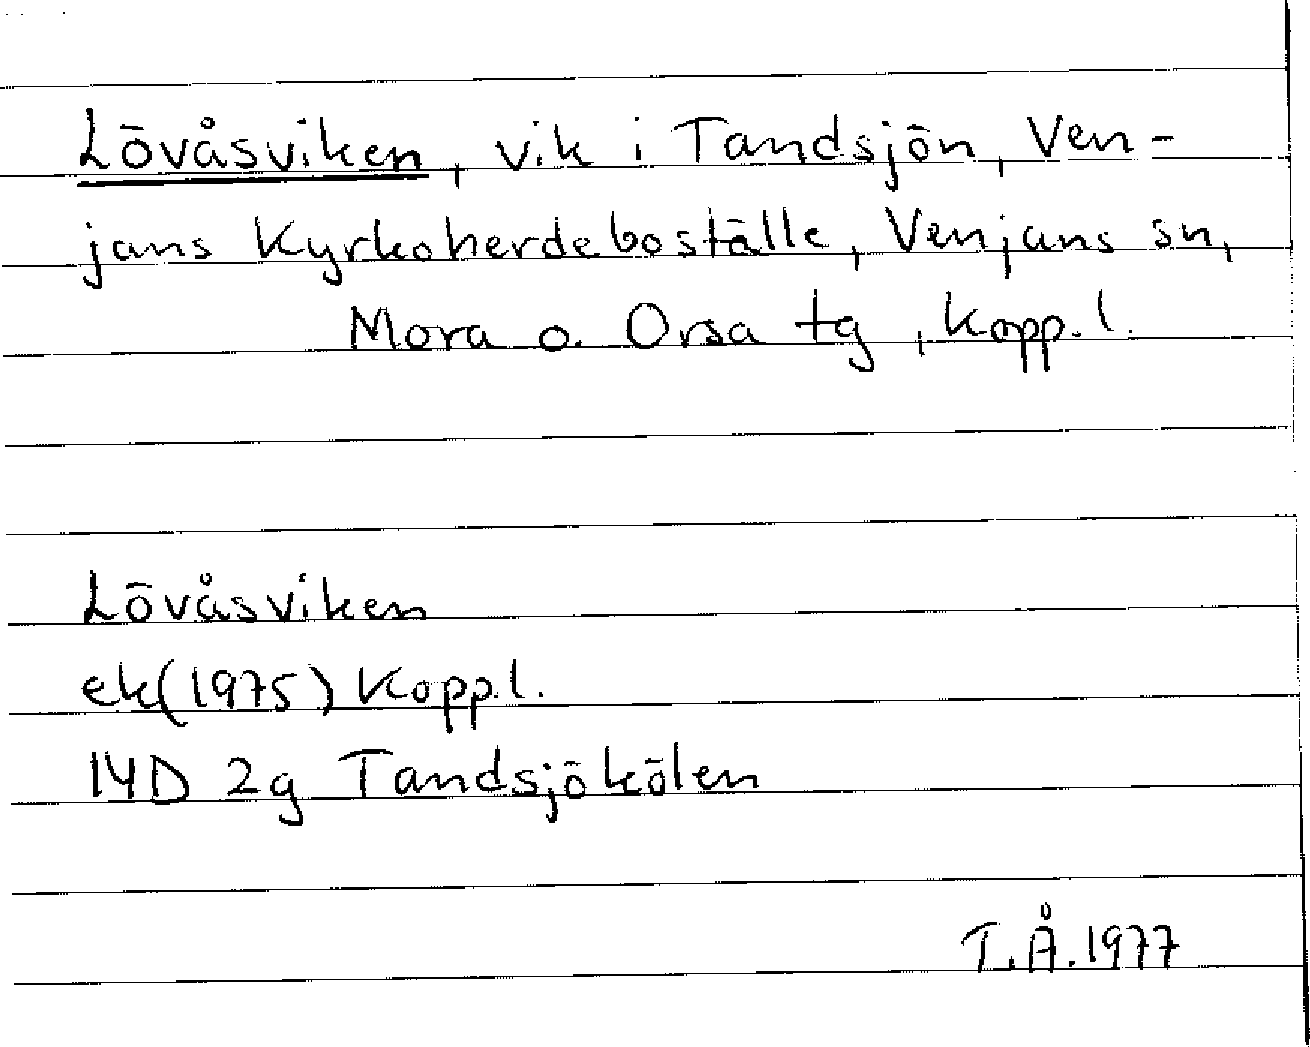 Lövåsviken, vik i Tandsjön, Ven-
jans Kyrkoherdeboställe, Venjans sn,
Mora o. Orsa tg, Kopp. l.
Lövåsviken
ek(1975) Kopp.l.
14D 2g Tandsjökölen
T.Å.1977